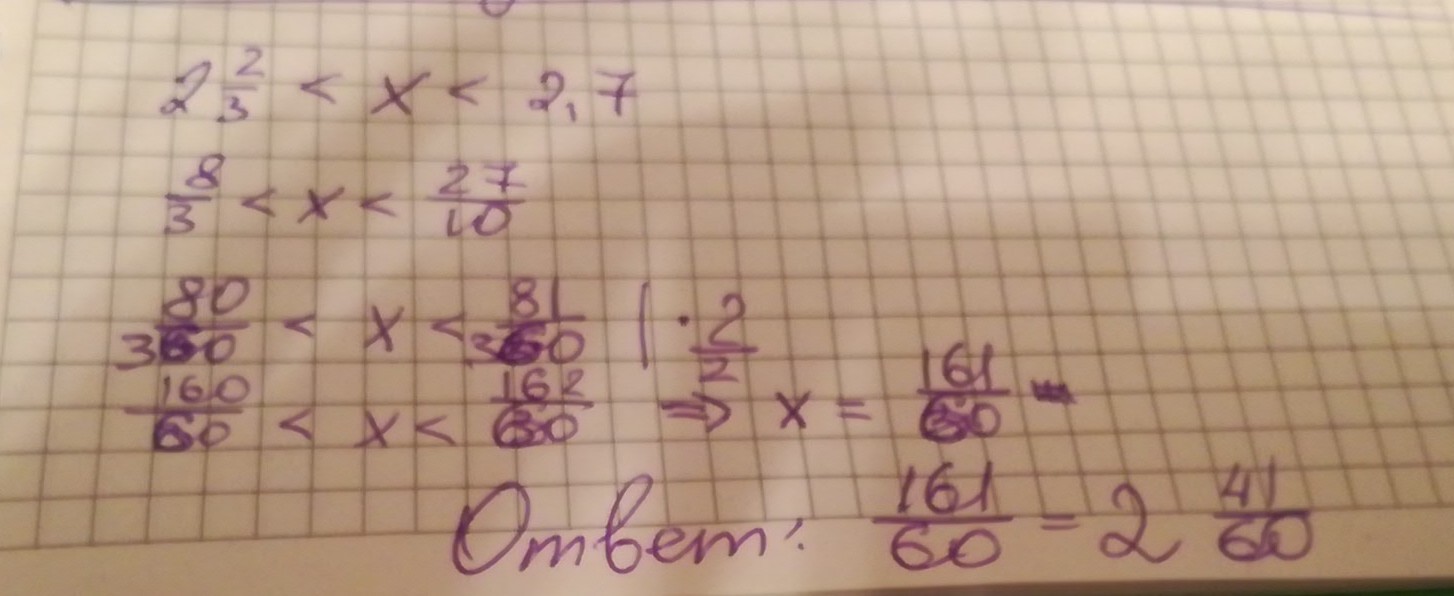 2 2/3 < x < 2,7
8/3 < x < 27/10
80/30 < x < 81/30 | · 2/2
160/60 < x < 162/60 ⇒ x = 161/60
Ответ: 161/60 = 2 41/60